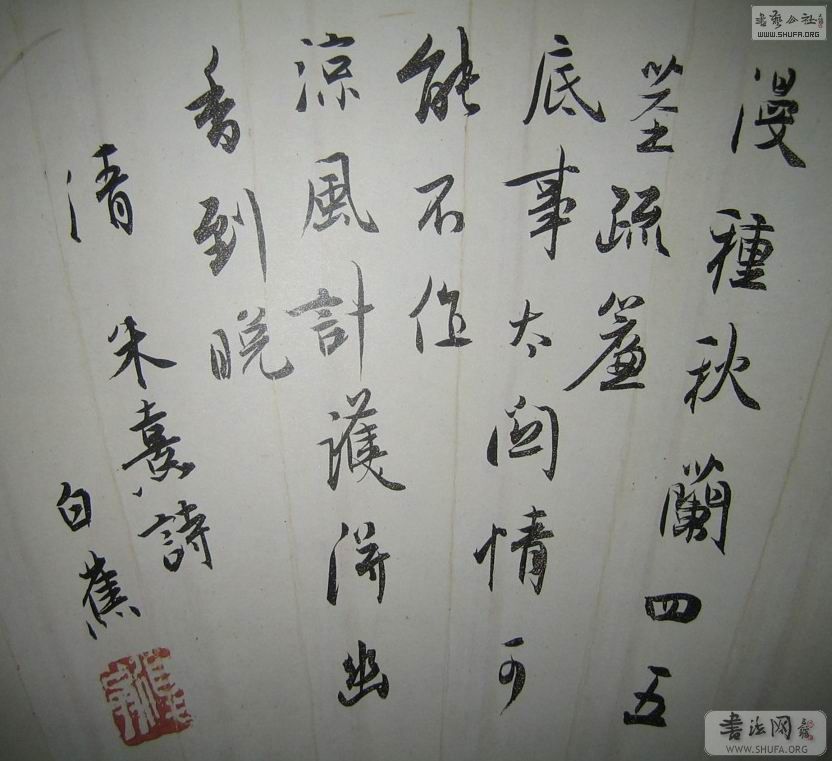 漫種秋蘭四五
莖疏簾
底事太關情可
能不作
涼風計護得幽
香到晚
清 朱熹詩
白蕉
書藝公社
WWW.SHUFA.ORG
書法网
WWW.SHUFA.ORG